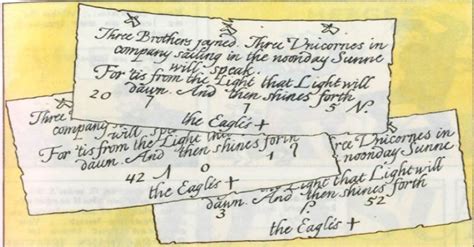 Three Brothers joyned. Three Unicornes in
company sailing in the noonday Sunne
will speak.
For 'tis from the Light that Light will
dawn. And then shines forth
20 7 5 N.
the Eagles +
Three
company
will spe
For 'tis from the Light tha
dawn. And then shines forth
42 0
the Eagles +
ree Unicornes in
noonday Sunne
Light that Light will
dawn. And then shines forth
3 52
the Eagles +